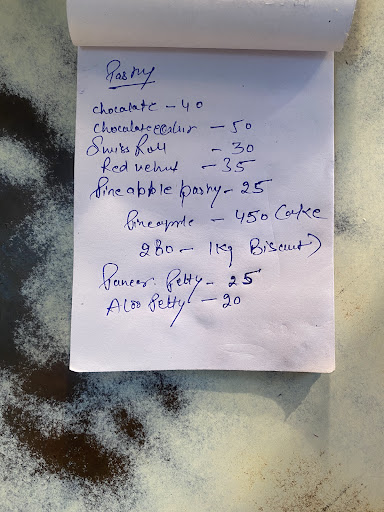 Pastry
chocolate - 40
chocolate - 50
Swiss Roll - 30
Red velvet - 35
Pineapple pastry - 25
Pineapple - 450 Cake
280 - 1 kg Biscuit)
Paneer Petty - 25
Aloo Petty - 20